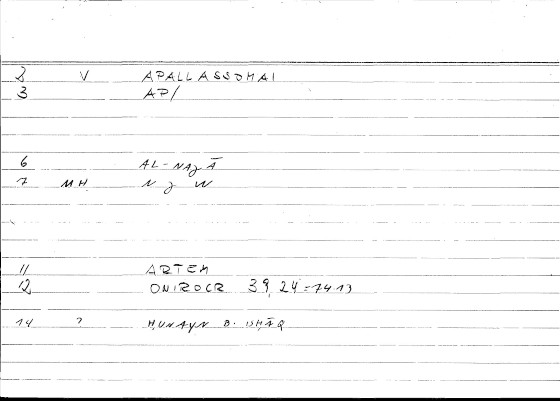 2 V APALLASSOMAI
3 AP/
6 AL-NAJĀ
7 MH N J W
11 ARTEM
12 ONIROCR 39,24=7413
14 ? ḤUNAYN B. ISḤĀQ